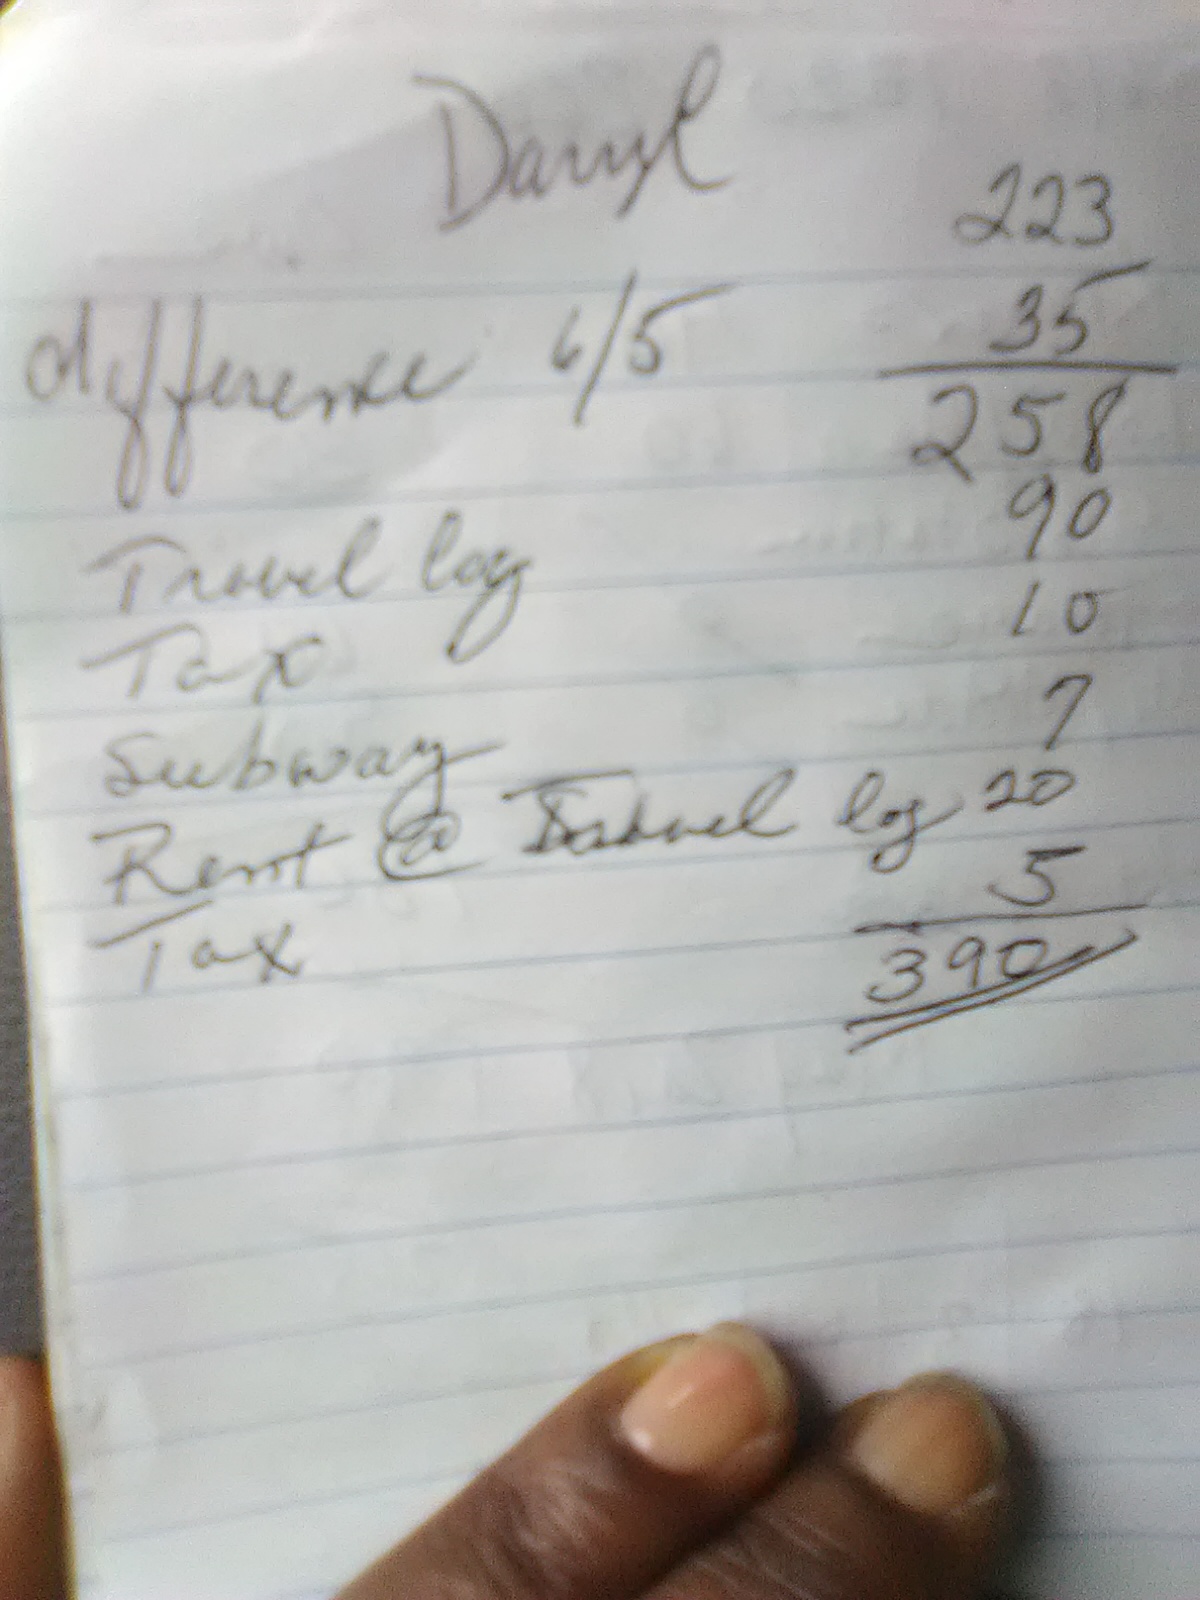 Darryl
223
difference 6/5 35
258
Travel log 90
Tax 10
Subway 7
Rent @ Travel log 20
Tax 5
390